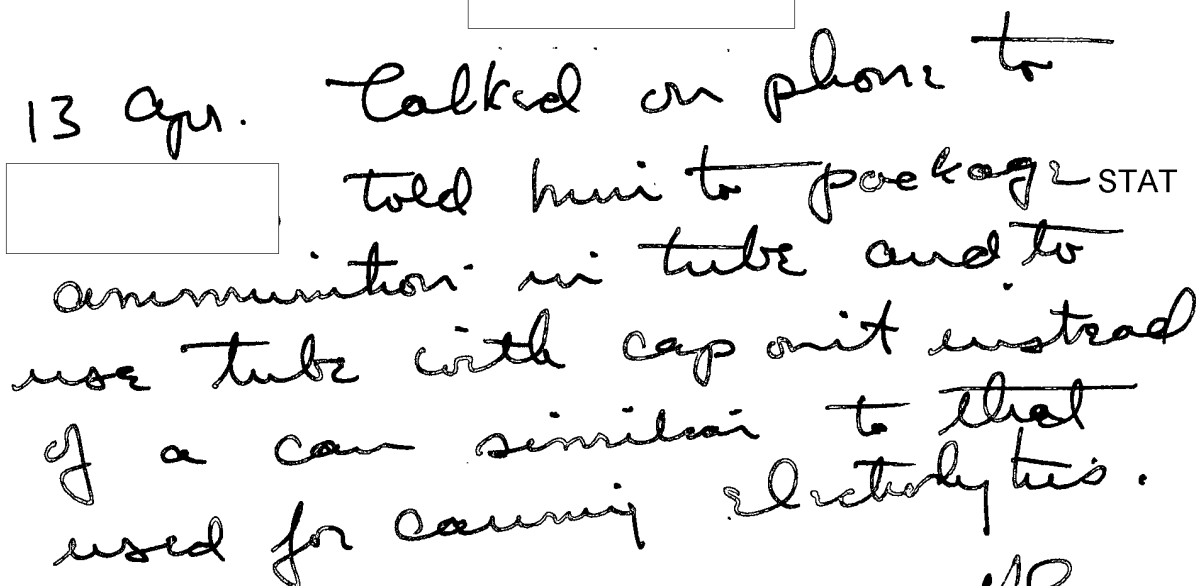 13 Apr. Talked on phone to
told him to package STAT
ammunition in tube and to
use tube with cap on it instead
of a can similiar to that
used for canning electrolytics.